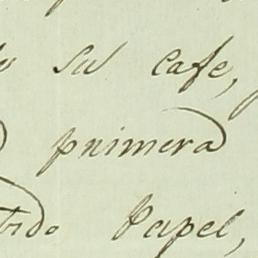 su cafe,
primera
tido Papel,